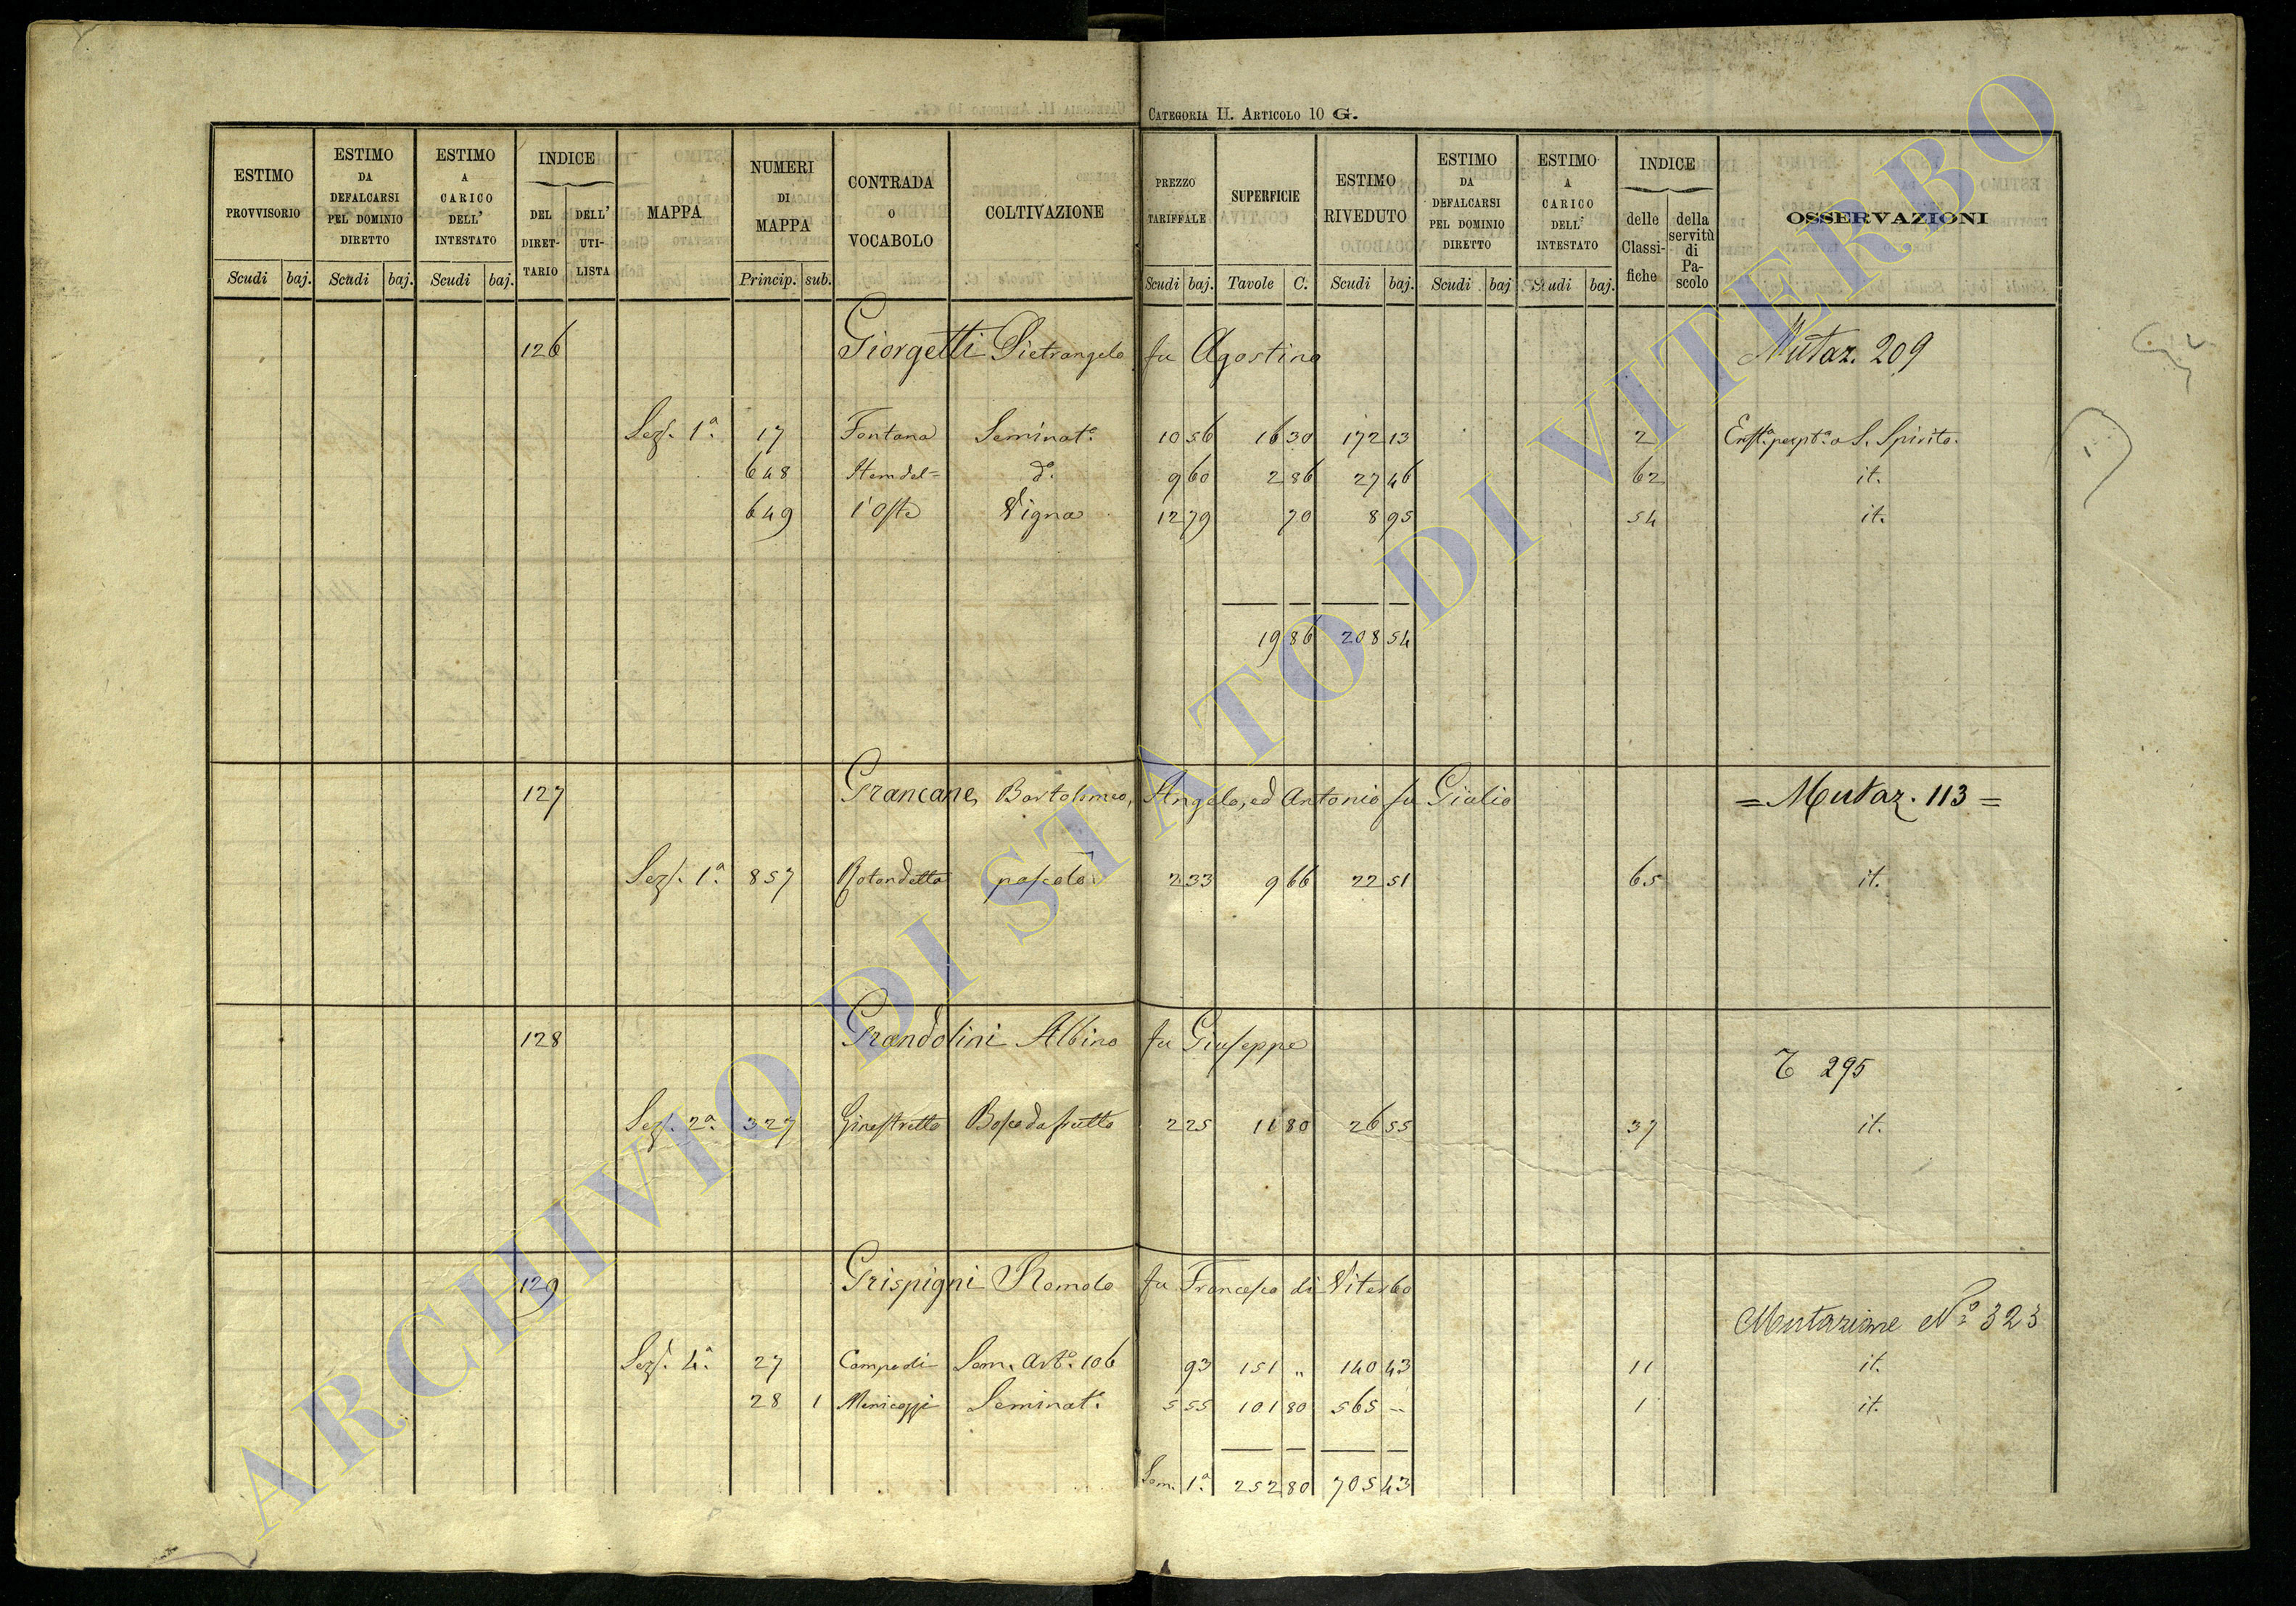 CATEGORIA II. ARTICOLO 10 G.
ESTIMO PROVVISORIO Scudi baj.
ESTIMO DA DEFALCARSI PEL DOMINIO DIRETTO Scudi baj.
ESTIMO A CARICO DELL' INTESTATO Scudi baj.
INDICE DEL DIRETTARIO DELL' UTILISTA
MAPPA
NUMERI DI MAPPA Princip. sub.
CONTRADA O VOCABOLO
COLTIVAZIONE
PREZZO TARIFFALE Scudi baj.
SUPERFICIE Tavole C.
ESTIMO RIVEDUTO Scudi baj.
ESTIMO DA DEFALCARSI PEL DOMINIO DIRETTO Scudi baj
ESTIMO A CARICO DELL' INTESTATO Scudi baj.
INDICE delle Classifiche della servitù di Pascolo
OSSERVAZIONI
126 Giorgetti Pietrangelo fu Agostino Mutaz. 209
Sez. 1ª 17 Fontana Seminat.º 10 56 16 30 172 13 2 a S. Spirito.
648 d.º 9 60 2 86 27 46 62 it.
649 l'Oste Vigna 12 79 70 8 95 54 it.
19 86 208 54
127 Grancane, Bartolomeo, Angelo, ed Antonio fu Giulio = Mutaz. 113 =
Sez. 1ª 857 Rotondella 2 33 9 66 22 51 65 it.
128 Grandolini Albino fu Giuseppe
295
Sez. 2ª 327 Ginestretto Bosco da frutto 2 25 11 80 26 55 37 it.
129 Grispigni Romolo fu Francesco di Viterbo
Mutazione Nº 323
Sez. 4ª 27 Campo di Sem. Art.º 106 93 151 " 140 43 11 it.
28 1 Menicozzi Seminat.º 5 55 101 80 565 - 1 it.
Som. 1ª 252 80 705 43
ARCHIVIO DI STATO DI VITERBO